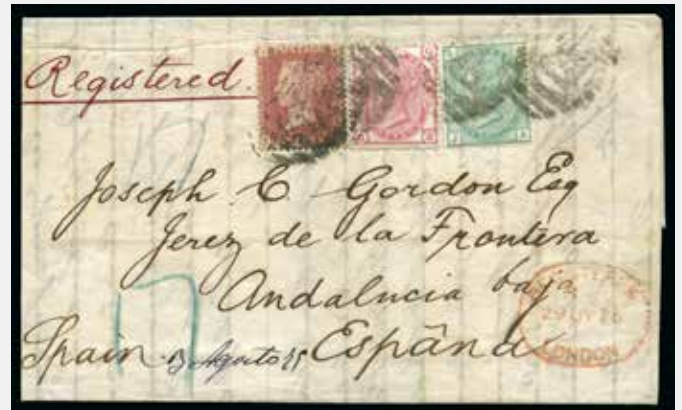 Registered.
Joseph C Gordon Esq
Jerez de la Frontera
Andalucia baja
17
Spain España
LONDON